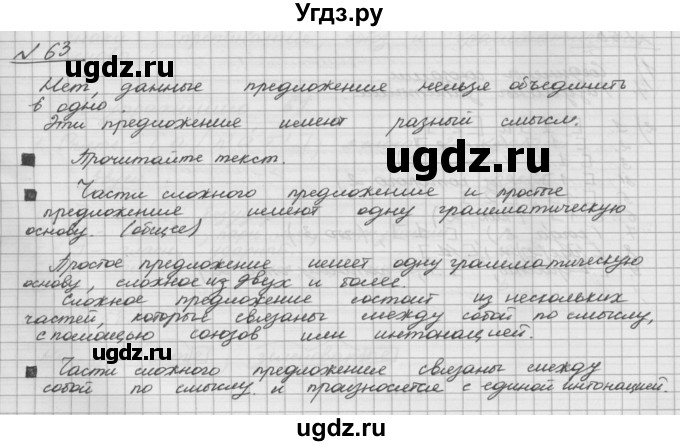 Угдз.ру
№ 63
Нет, данные предложение нельзя объединить
в одно.
Эти предложение имеют разный смысл.
Прочитайте текст.
Части сложного предложение и простые
предложение имеют одну грамматическую
основу. (общее)
Простое предложение имеет одну грамматическую
основу, сложное из двух и более.
Сложное предложение состоит из нескольких
частей, которые связаны между собой по смыслу,
с помощью союзов или интонацией.
Части сложного предложения связаны между
собой по смыслу и произносятся с единой интонацией.
ugdz.ru
ugdz.ru
ugdz.ru
ugdz.ru
ugdz.ru
ugdz.ru
Угдз.ру